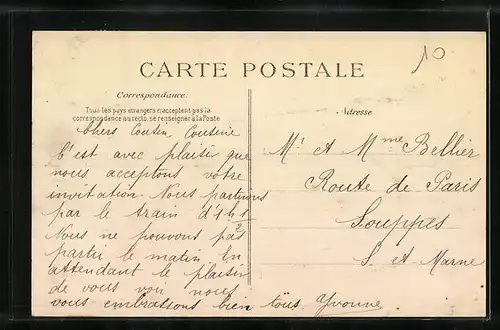 10
CARTE POSTALE
Correspondance
Tous les pays étrangers n'acceptent pas la
correspondance au recto, se renseigner à la Poste
Chers Cousin Cousine
C'est avec plaisir que
nous acceptons votre
invitation. Nous partirons
par le train d'
Nous ne pouvons pas
partir le matin En
attendant le plaisir
de vous voir nous
vous embrassons bien tous. Yvonne
Adresse
Mr et Mme Bellier
Route de Paris
Souppes
S. et Marne